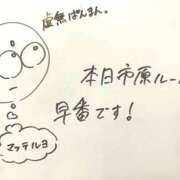 虚無ぱんまん。
本日市原ルー
早番です！
マッテルヨ